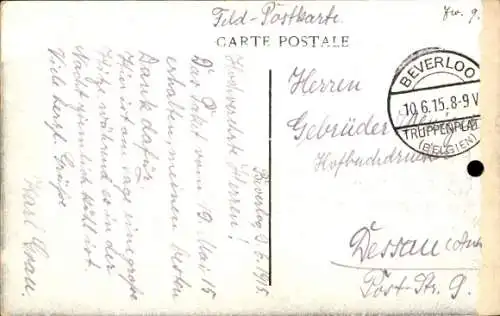 Feld-Postkarte.
CARTE POSTALE
BEVERLOO
10.6.15.8-9 V
TRUPPENPLATZ
(BELGIEN)
Herren
Gebrüder
Hofbuchdrucker
Dessau (Anh
Post-Str. 9.
Beverloo 9.6.1915.
Hochverehrte Herren!
Das Paket vom 19. Mai 15
erhalten, meinen besten
Dank dafür.
Hier ist am Tage eine große
Hitze während es in der
Nacht ziemlich kühl ist.
Viele herzl. Grüße
Karl